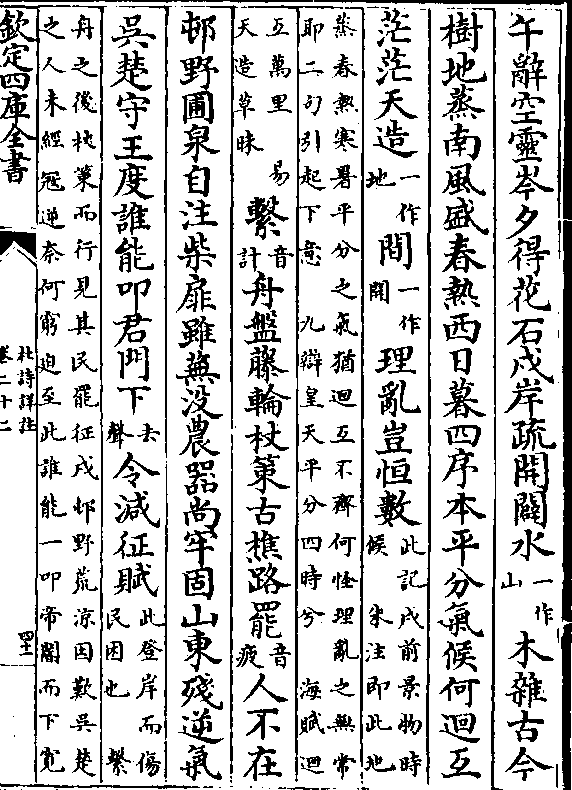 午辭空靈岑夕得花石戍岸疏開闢水一作山木雜古今
樹地蒸南風盛春熱西日暮四序本平分氣候何迴互
茫茫天造一作地間一作開理亂豈恒數此記戍前景物時候 朱注即此地
蒸春熱寒暑平分之氣猶迴互不齊何怪理亂之無常
耶二句引起下意 九辯皇天平分四時兮 海賦迴
互萬里 易天造草昧 繫音計舟盤藤輪杖策古樵路罷音疲人不在
邨野圃泉自注柴扉雖蕪没農器尚牢固山東殘逆氣
吳楚守王度誰能叩君門下去聲令減征賦此登岸而傷民困也 繫
舟之後杖策而行見其民罷征戍邨野荒涼因歎吳楚
之人未經冦逆奈何窮迫至此誰能一叩帝閽而下寛
欽定四庫全書
杜詩詳註
卷二十二
四十二